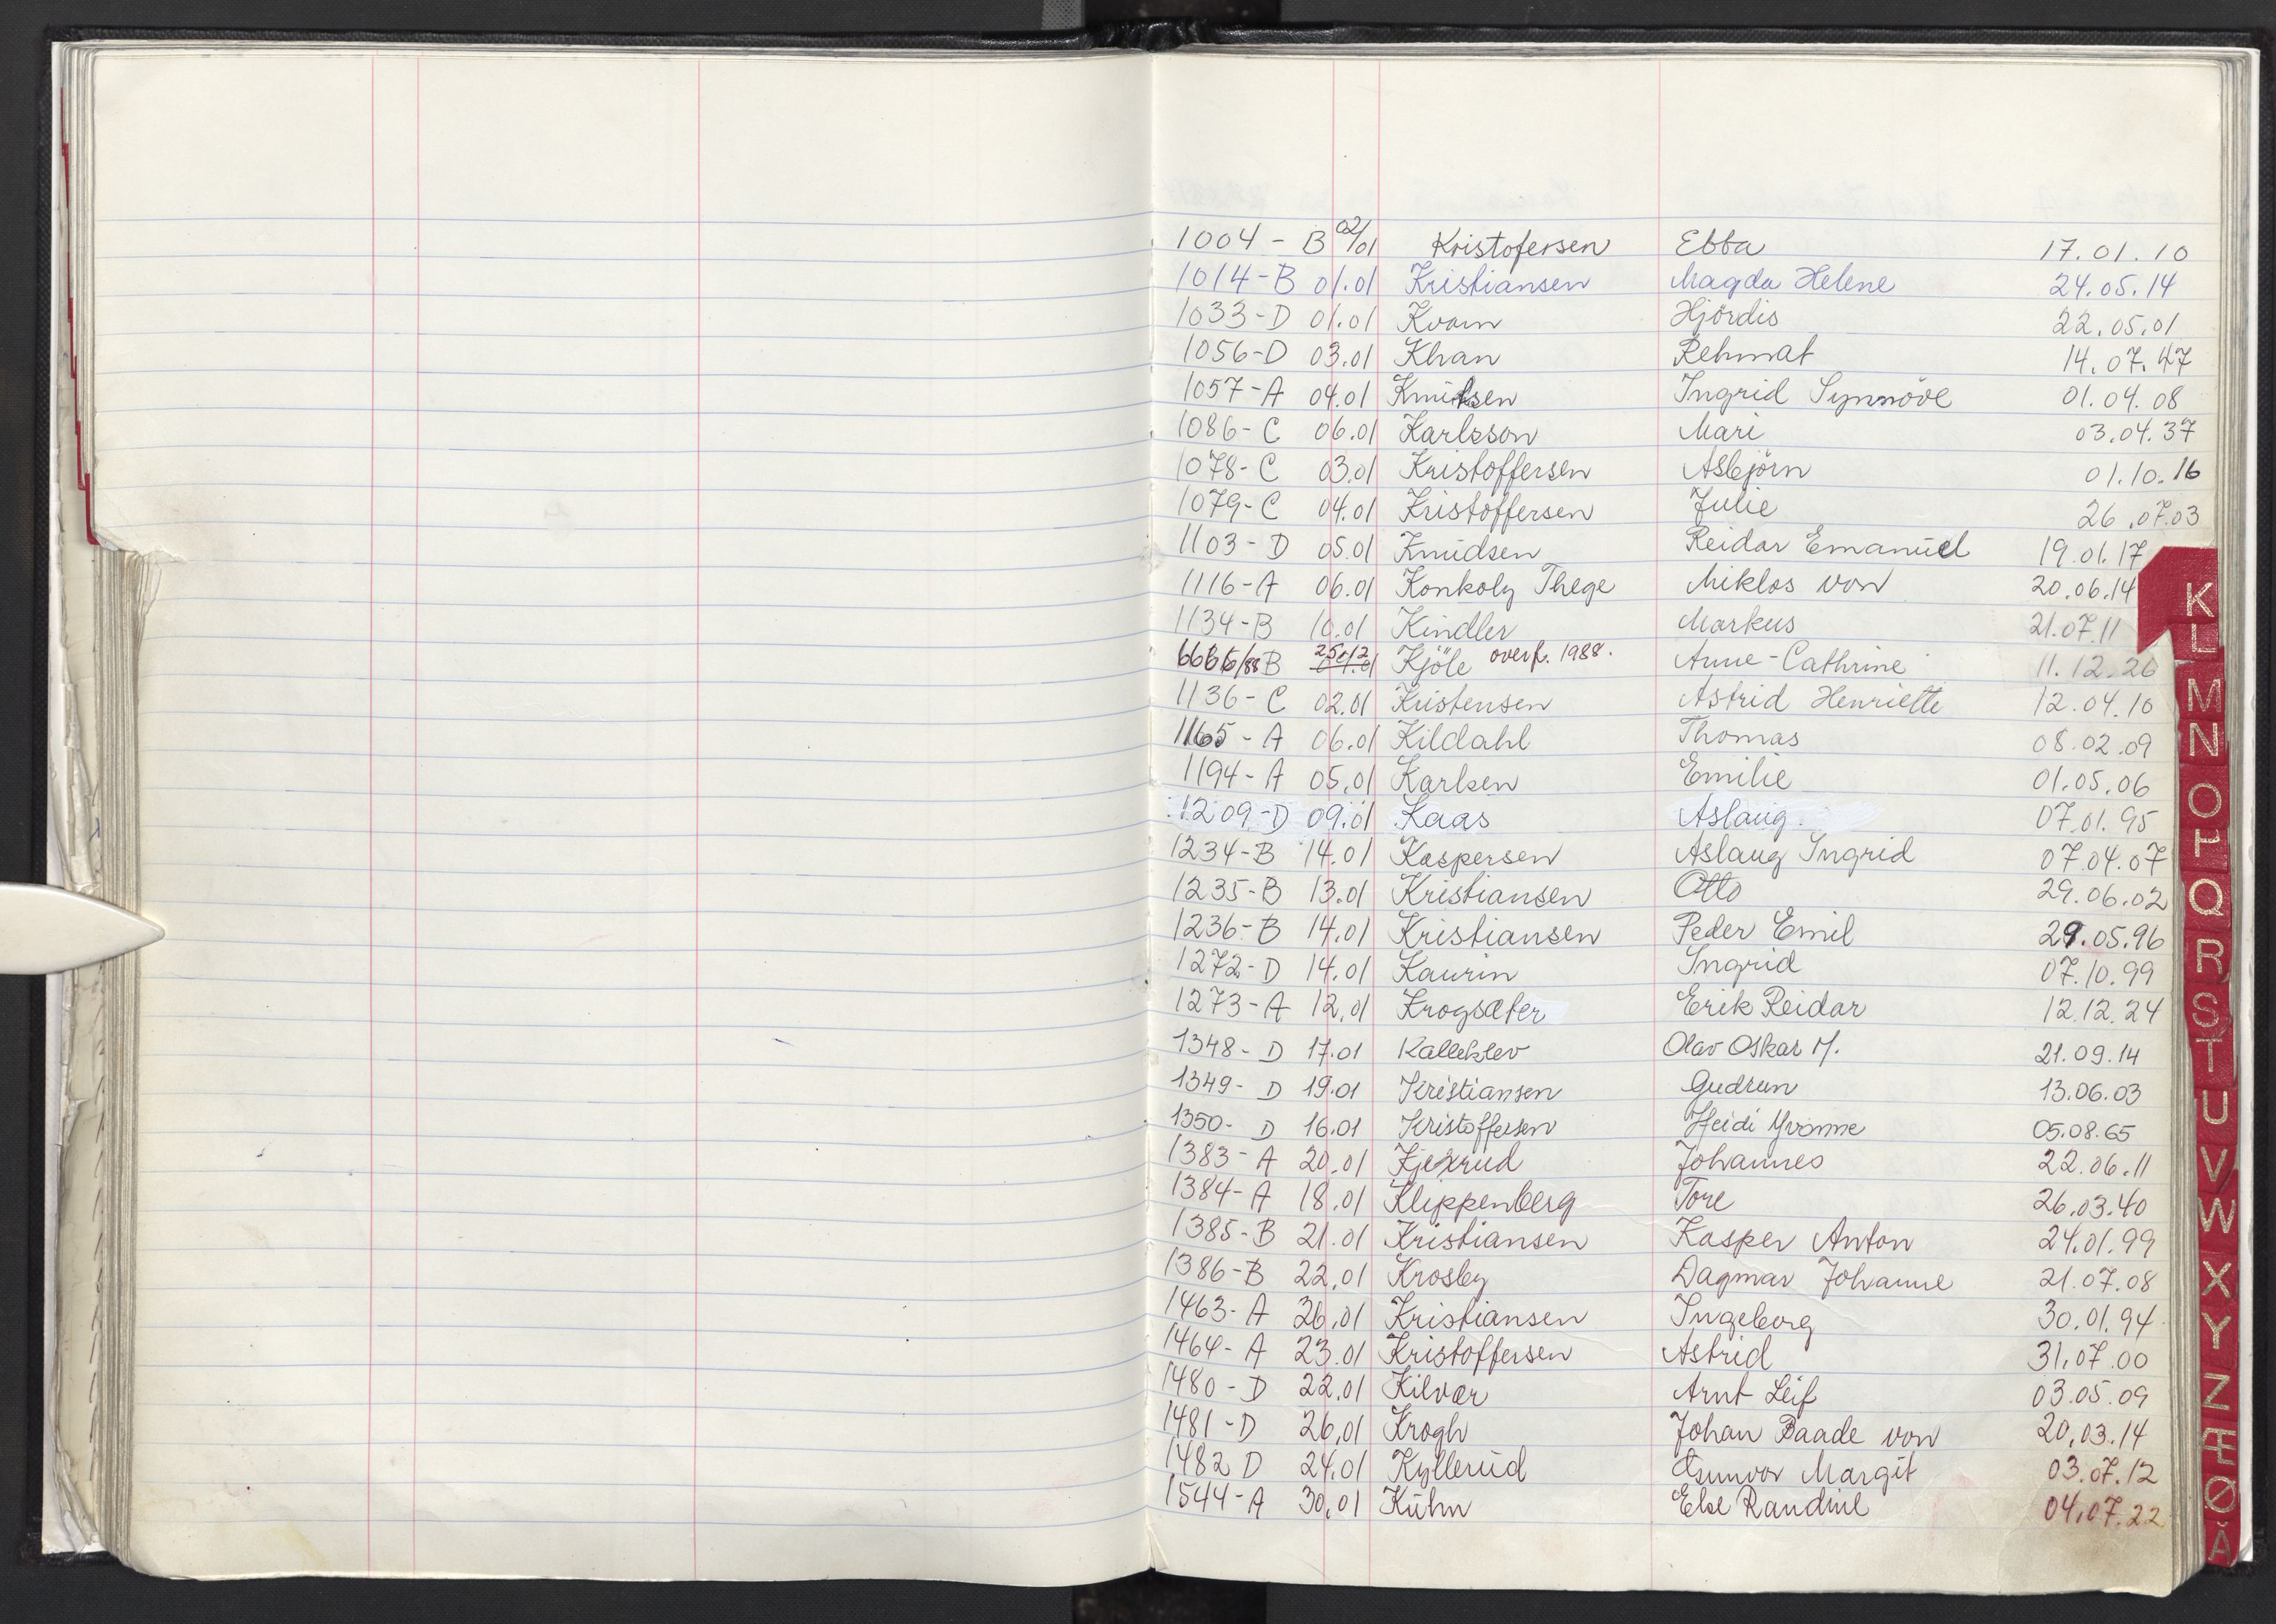 1004 - B 02/01 Kristofersen Ebba 17.01.10
1014-B 01.01 Kristiansen Magda Helene 24.05.14
1033-D 01.01 Kvam Hjördis 22.05.01
1056-D 03.01 Khan Rehmat 14.07.47
1057-A 04.01 Knutsen Ingrid Synnöve 01.04.08
1086-C 06.01 Karlsson Mari 03.04.37
1078-C 03.01 Kristoffersen Asbjörn 01.10.16
1079-C 04.01 Kristoffersen Julie 26.07.03
1103-D 05.01 Knudsen Reidar Emanuel 19.01.17
1116-A 06.01 Konkoly Thege Miklos von 20.06.14
1134-B 10.01 Kindler Markus 21.07.11
6666/88 B 25.12 Kjöle overf. 1988. Anne-Cathrine 11.12.26
1136-C 02.01 Kristensen Astrid Henriette 12.04.10
1165-A 06.01 Kildahl Thomas 08.02.09
1194-A 05.01 Karlsen Emilie 01.05.06
1209-D 09.01 Kaas Aslaug 07.01.95
1234-B 14.01 Kaspersen Aslaug Ingrid 07.04.07
1235-B 13.01 Kristiansen Otto 29.06.02
1236-B 14.01 Kristiansen Peder Emil 29.05.96
1272-D 14.01 Kaurin Ingrid 07.10.99
1273-A 12.01 Krogsæter Erik Reidar 12.12.24
1348-D 17.01 Kalleklev Olav Oskar M. 21.09.14
1349-D 19.01 Kristiansen Gudrun 13.06.03
1350-D 16.01 Kristoffersen Heidi Yvonne 05.08.65
1383-A 20.01 Kjexrud Johannes 22.06.11
1384-A 18.01 Klippenberg Tore 26.03.40
1385-B 21.01 Kristiansen Kasper Anton 24.01.99
1386-B 22.01 Krosby Dagmar Johanne 21.07.08
1463-A 26.01 Kristiansen Ingeborg 30.01.94
1464-A 23.01 Kristoffersen Astrid 31.07.00
1480-D 22.01 Kilvær Arnt Leif 03.05.09
1481-D 26.01 Krogh Johan Paade von 20.03.14
1482 D 24.01 Kyllerud Gunvor Margit 03.07.12
1544-A 30.01 Kühn Else Randine 04.07.22
K
L
M
N
O
P
Q
R
S
T
U
V
W
X
Y
Z
Æ
Ø
Å